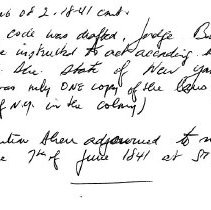 of 2. 1841 cont.
code was drafted, Judge B
instructed to act according
the State of New Yor
was only ONE copy of the laws
of N.Y. in the colony)
then adjourned to m
e 7th of June 1841 at St